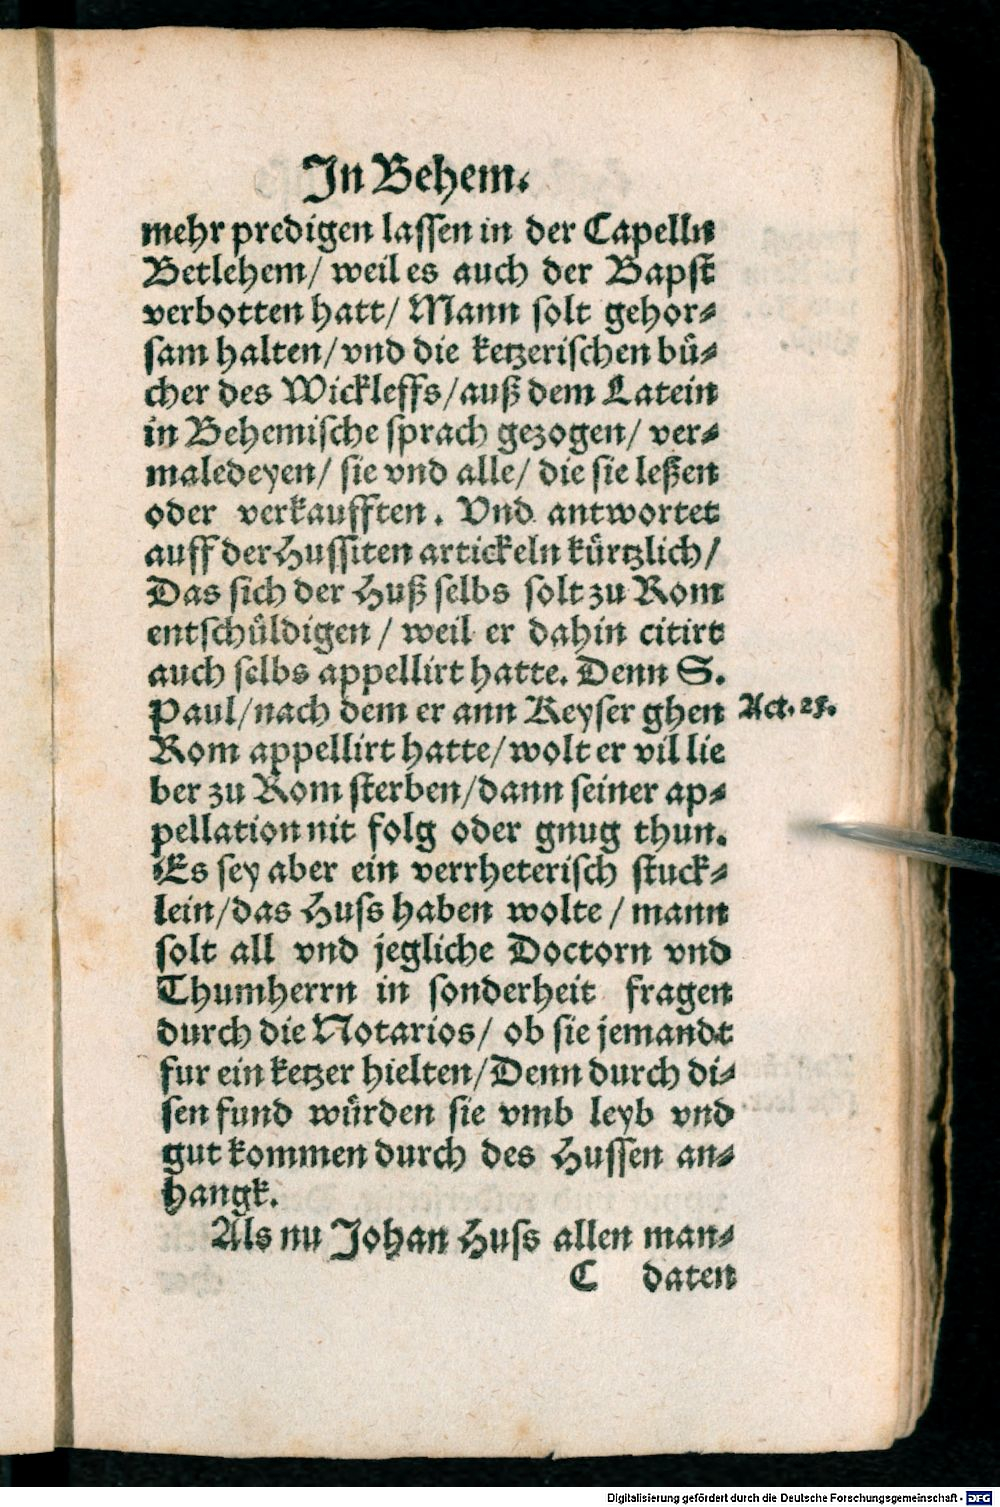 In Behem.
mehr predigen lassen in der Capelln
Betlehem/ weil es auch der Bapst
verbotten hatt/ Mann solt gehor⸗
sam halten/ vnd die ketzerischen bů⸗
cher des Wickleffs/ auß dem Latein
in Behemische sprach gezogen/ ver⸗
maledeyen/ sie vnd alle/ die sie leßen
oder verkaufften. Vnd antwortet
auff der Hussiten artickeln kůrtzlich/
Das sich der Huß selbs solt zu Rom
entschůldigen/ weil er dahin citirt
auch selbs appellirt hatte. Denn S.
Paul/ nach dem er ann Keyser ghen
Act. 25.
Rom appellirt hatte/ wolt er vil lie
ber zu Rom sterben/ dann seiner ap⸗
pellation nit folg oder gnug thun.
Es sey aber ein verrheterisch stuck⸗
lein/ das Huss haben wolte/ mann
solt all vnd jegliche Doctorn vnd
Thumherrn in sonderheit fragen
durch die Notarios/ ob sie jemandt
fur ein ketzer hielten/ Denn durch di⸗
sen fund wůrden sie vmb leyb vnd
gut kommen durch des Hussen an⸗
hangk.
Als nu Johan Huss allen man⸗
C daten
Digitalisierung gefördert durch die Deutsche Forschungsgemeinschaft - DFG